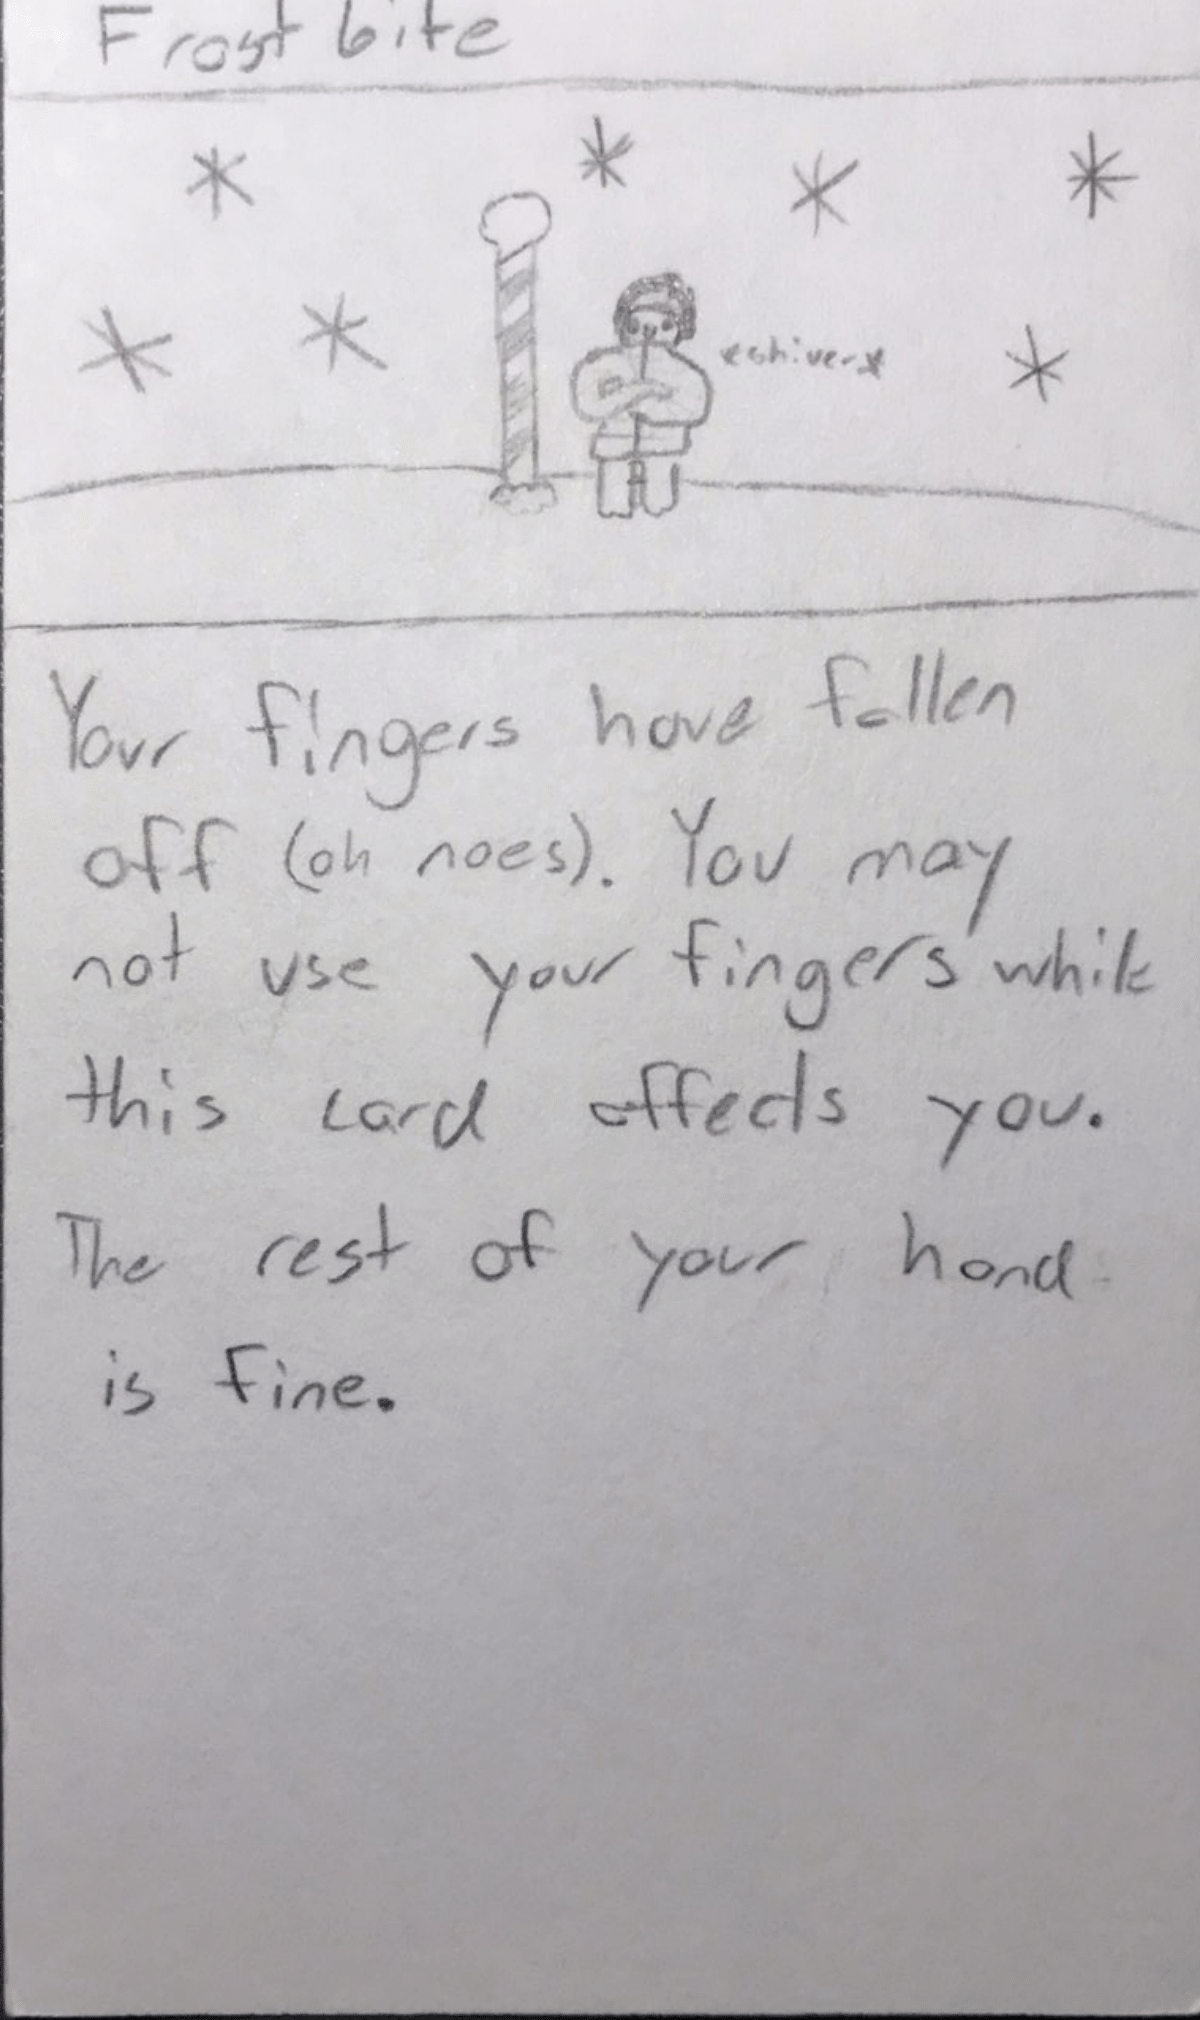 Frost bite
*shivers*
Your fingers have fallen
off (oh noes). You may
not use your fingers while
this card affects you.
The rest of your hand
is fine.